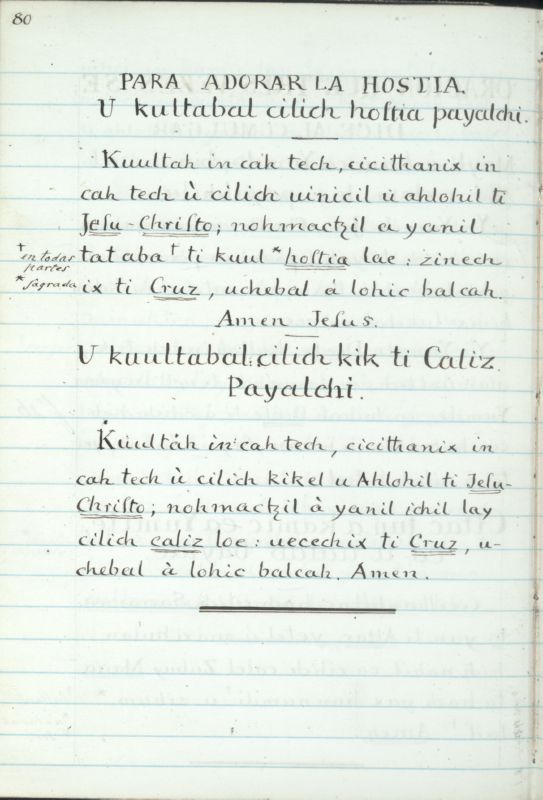 80
PARA ADORAR LA HOSTIA.
U kultabal cilich hoſtia payalchi.
Kuultah in cah tech, cicithanix in
cah tech ù cilich uinicil ù ahlohil ti
Jeſu-Chriſto; nohmactzil a yanil
tat aba† ti kuul *hoſtia lae: zinech
ix ti Cruz, uchebal á lohic balcah.
Amen Jeſus.
† en todas
partes
* sagrada
U kuultabal cilich kik ti Caliz
Payalchi.
Kuultàh in cah tech, cicithanix in
cah tech ù cilich kikel u Ahlohil ti Jeſu-
Chriſto; nohmactzil à yanil ichil lay
cilich caliz loe: uecechix ti Cruz, u-
chebal à lohic balcah. Amen.